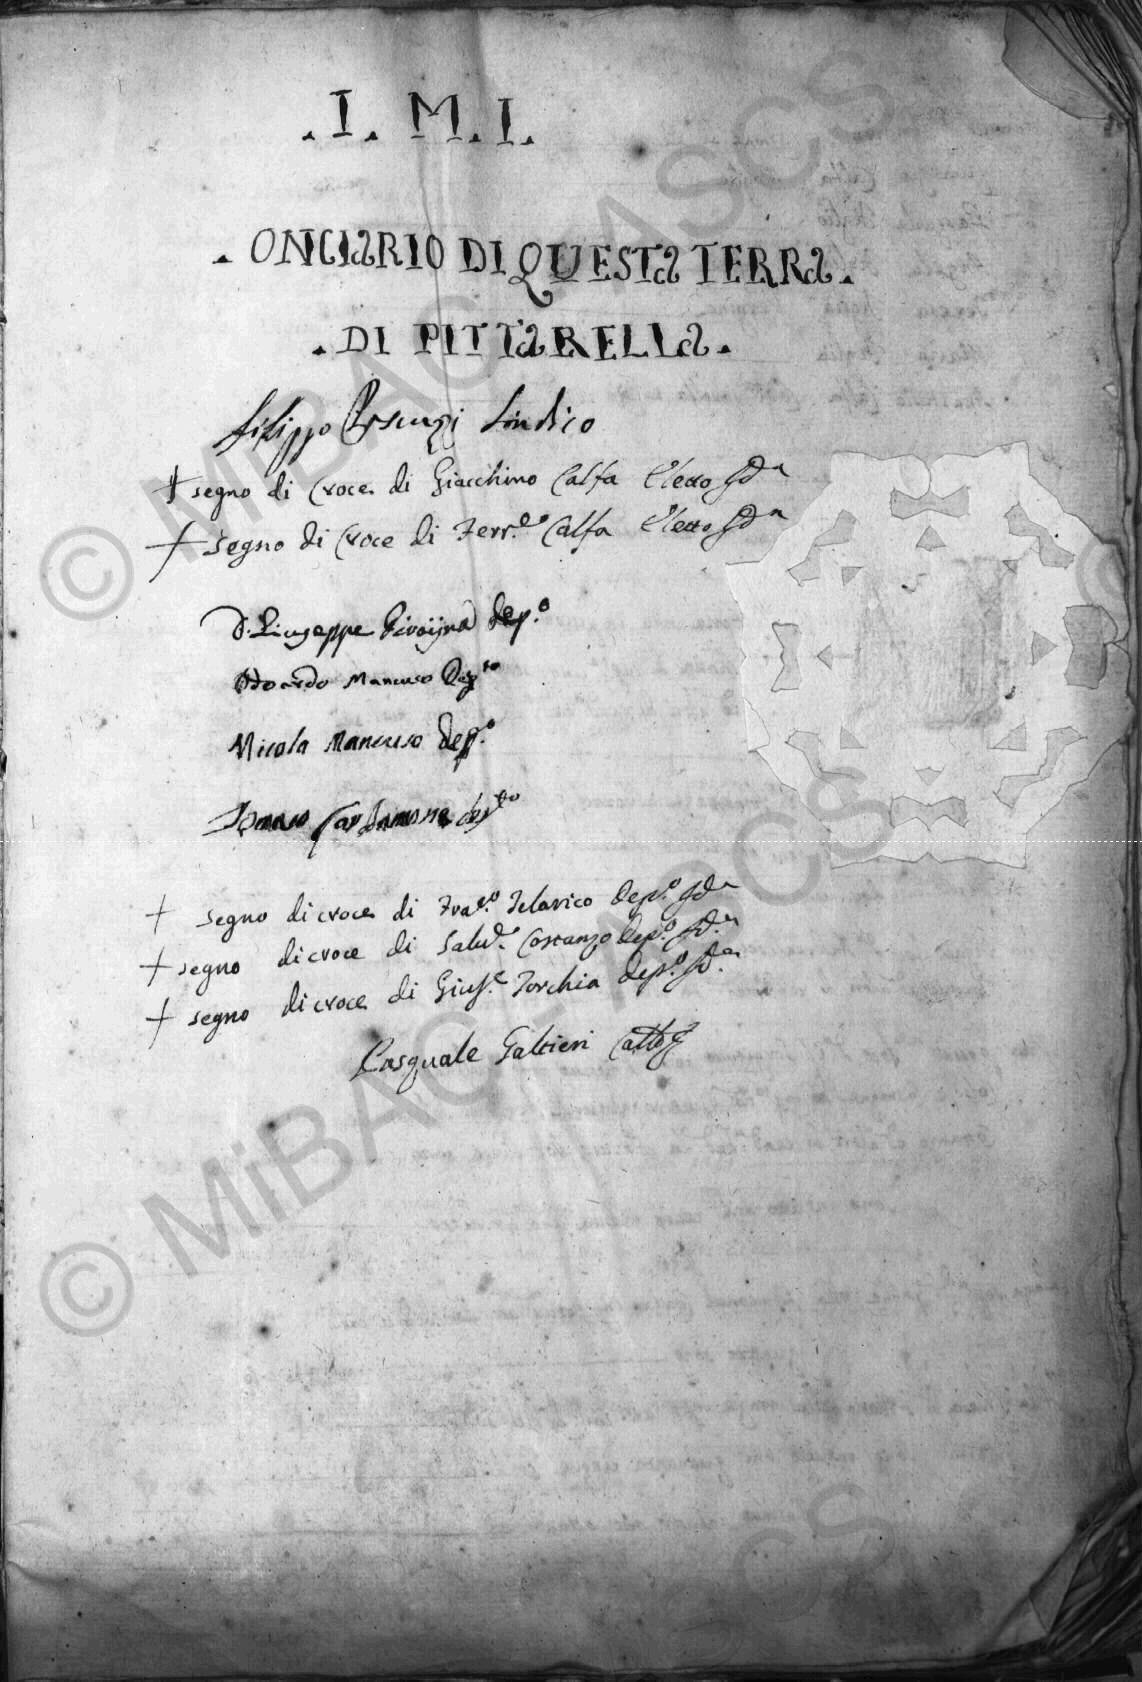 . I. M. I.
. ONCIARIO DI QUESTA TERRA .
. DI PITTARELLA .
Filippo Sindico
+ segno di Croce di Giacchino Calfa Eletto
+ segno di Croce di Ferr.do Calfa Eletto
D. Giuseppe dep.o
Odoardo Mancuso Dep.to
Nicola Mancuso dep.o
Cardamone dep.to
+ segno di croce di Fra.co Telarico dep.o
+ segno di croce di Salv.e Costanzo dep.o
+ segno di croce di Gius.e Torchia dep.o
Pasquale Galtieri
© MiBAC - ASCS
© MiBAC - ASCS